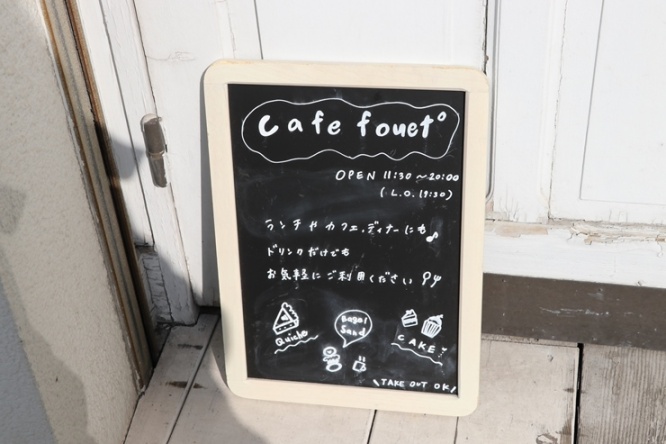 cafe fouet°
OPEN 11:30～20:00
(L.O. 19:30)
ランチやカフェ、ディナーにも♪
ドリンクだけでも
お気軽にご利用ください
Quiche
Bagel
Sand
CAKE
\TAKE OUT OK/